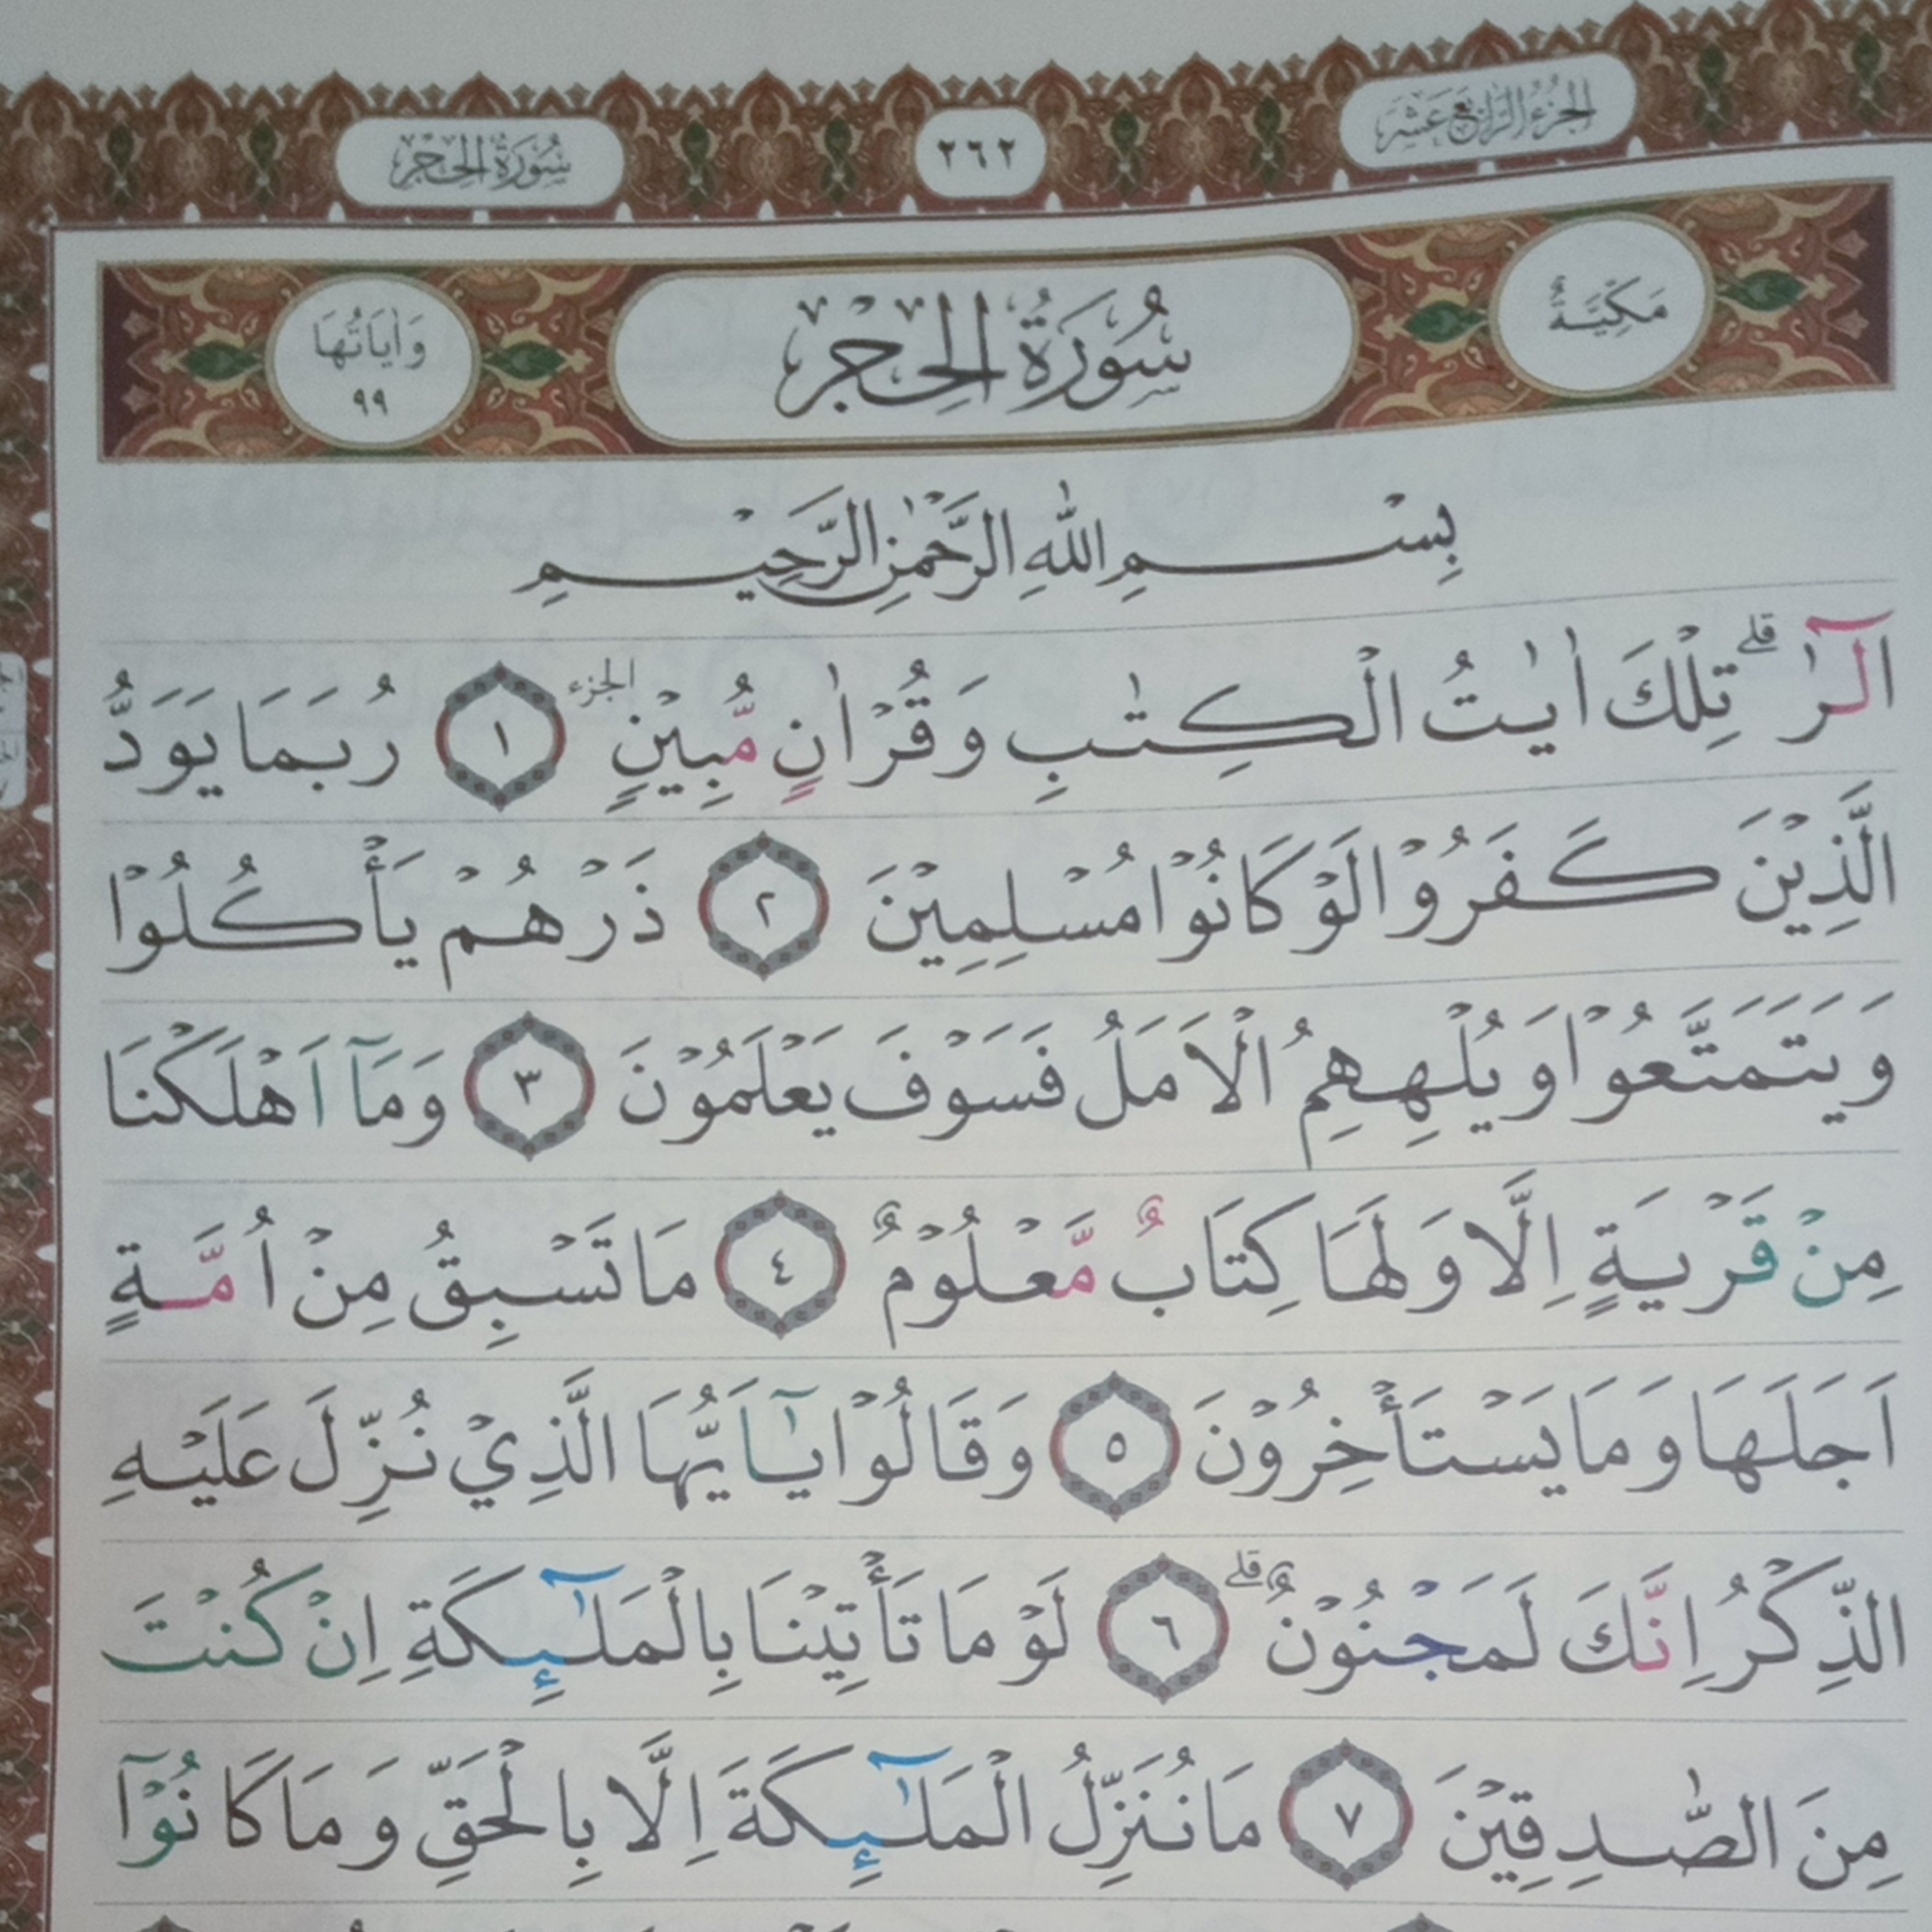 الجزء الرابع عشر
٢٦٢
سُورَةُ الْحِجْرِ
مَكِّيَّةٌ
سُورَةُ الْحِجْرِ
وَاٰيَاتُهَا
٩٩
بِسْمِ اللّٰهِ الرَّحْمٰنِ الرَّحِيْمِ
الٓرٰ ۗ تِلْكَ اٰيٰتُ الْكِتٰبِ وَقُرْاٰنٍ مُّبِيْنٍ الجزء ١ رُبَمَا يَوَدُّ
الَّذِيْنَ كَفَرُوْا لَوْ كَانُوْا مُسْلِمِيْنَ ٢ ذَرْهُمْ يَأْكُلُوْا
وَيَتَمَتَّعُوْا وَيُلْهِهِمُ الْاَمَلُ فَسَوْفَ يَعْلَمُوْنَ ٣ وَمَآ اَهْلَكْنَا
مِنْ قَرْيَةٍ اِلَّا وَلَهَا كِتَابٌ مَّعْلُوْمٌ ٤ مَا تَسْبِقُ مِنْ اُمَّةٍ
اَجَلَهَا وَمَا يَسْتَأْخِرُوْنَ ٥ وَقَالُوْا يٰٓاَيُّهَا الَّذِيْ نُزِّلَ عَلَيْهِ
الذِّكْرُ اِنَّكَ لَمَجْنُوْنٌ ۗ ٦ لَوْ مَا تَأْتِيْنَا بِالْمَلٰٓئِكَةِ اِنْ كُنْتَ
مِنَ الصّٰدِقِيْنَ ٧ مَا نُنَزِّلُ الْمَلٰٓئِكَةَ اِلَّا بِالْحَقِّ وَمَا كَانُوْٓا